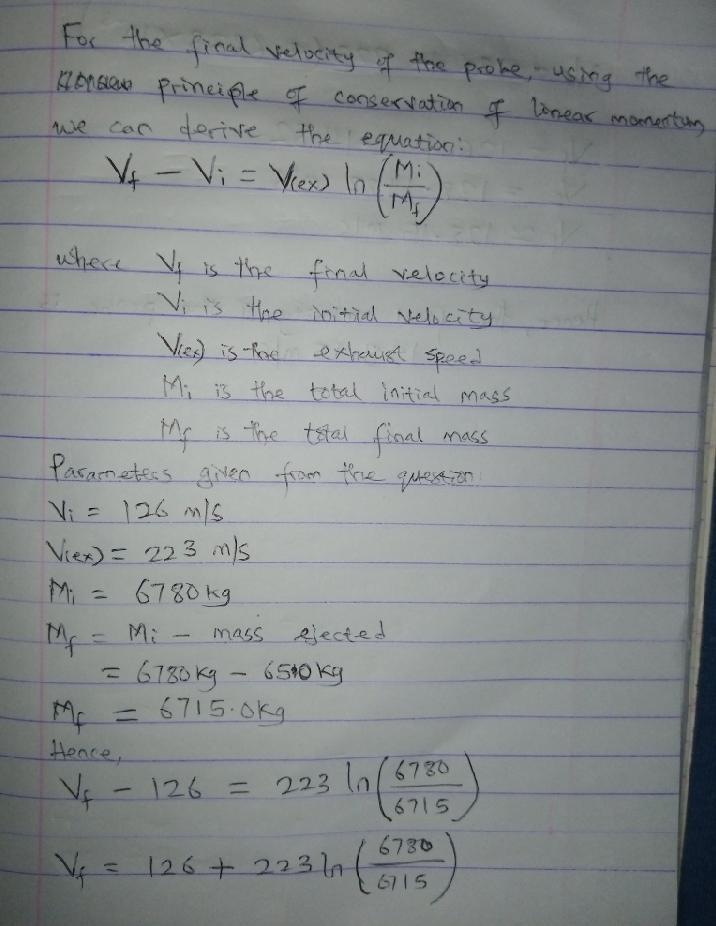 For the final velocity of the probe, using the
principle of conservation of linear momentum,
we can derive the equation:
Vf - Vi = V(ex) ln (Mi/Mf)
where Vf is the final velocity
Vi is the initial velocity
V(ex) is the exhaust speed
Mi is the total initial mass
Mf is the total final mass
Parameters given from the question:
Vi = 126 m/s
V(ex) = 223 m/s
Mi = 6780 kg
Mf = Mi - mass ejected
= 6780 kg - kg
Mf = 6715.0 kg
Hence,
Vf - 126 = 223 ln (6780/6715)
Vf = 126 + 223 ln (6780/6715)